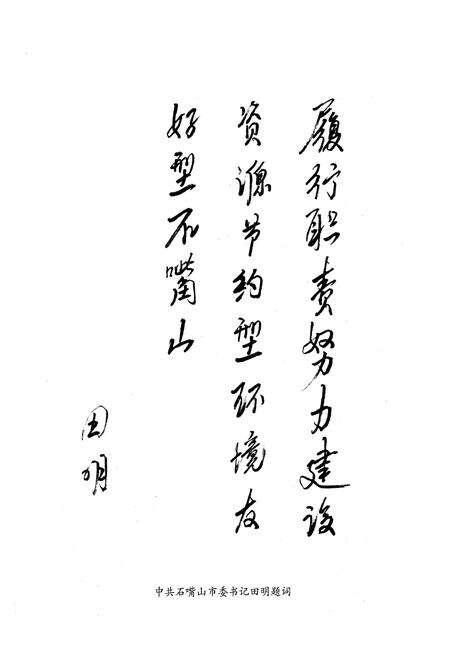 履行职责努力建设
资源节约型环境友
好型石嘴山
田明
中共石嘴山市委书记田明题词